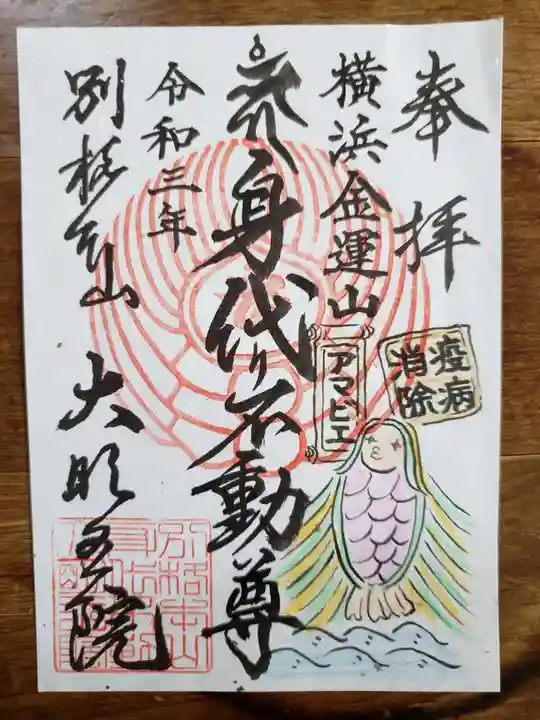 奉拝
横浜金運山
疫病
消除
アマビエ
身代り不動尊
令和三年
別格本山
大明王院